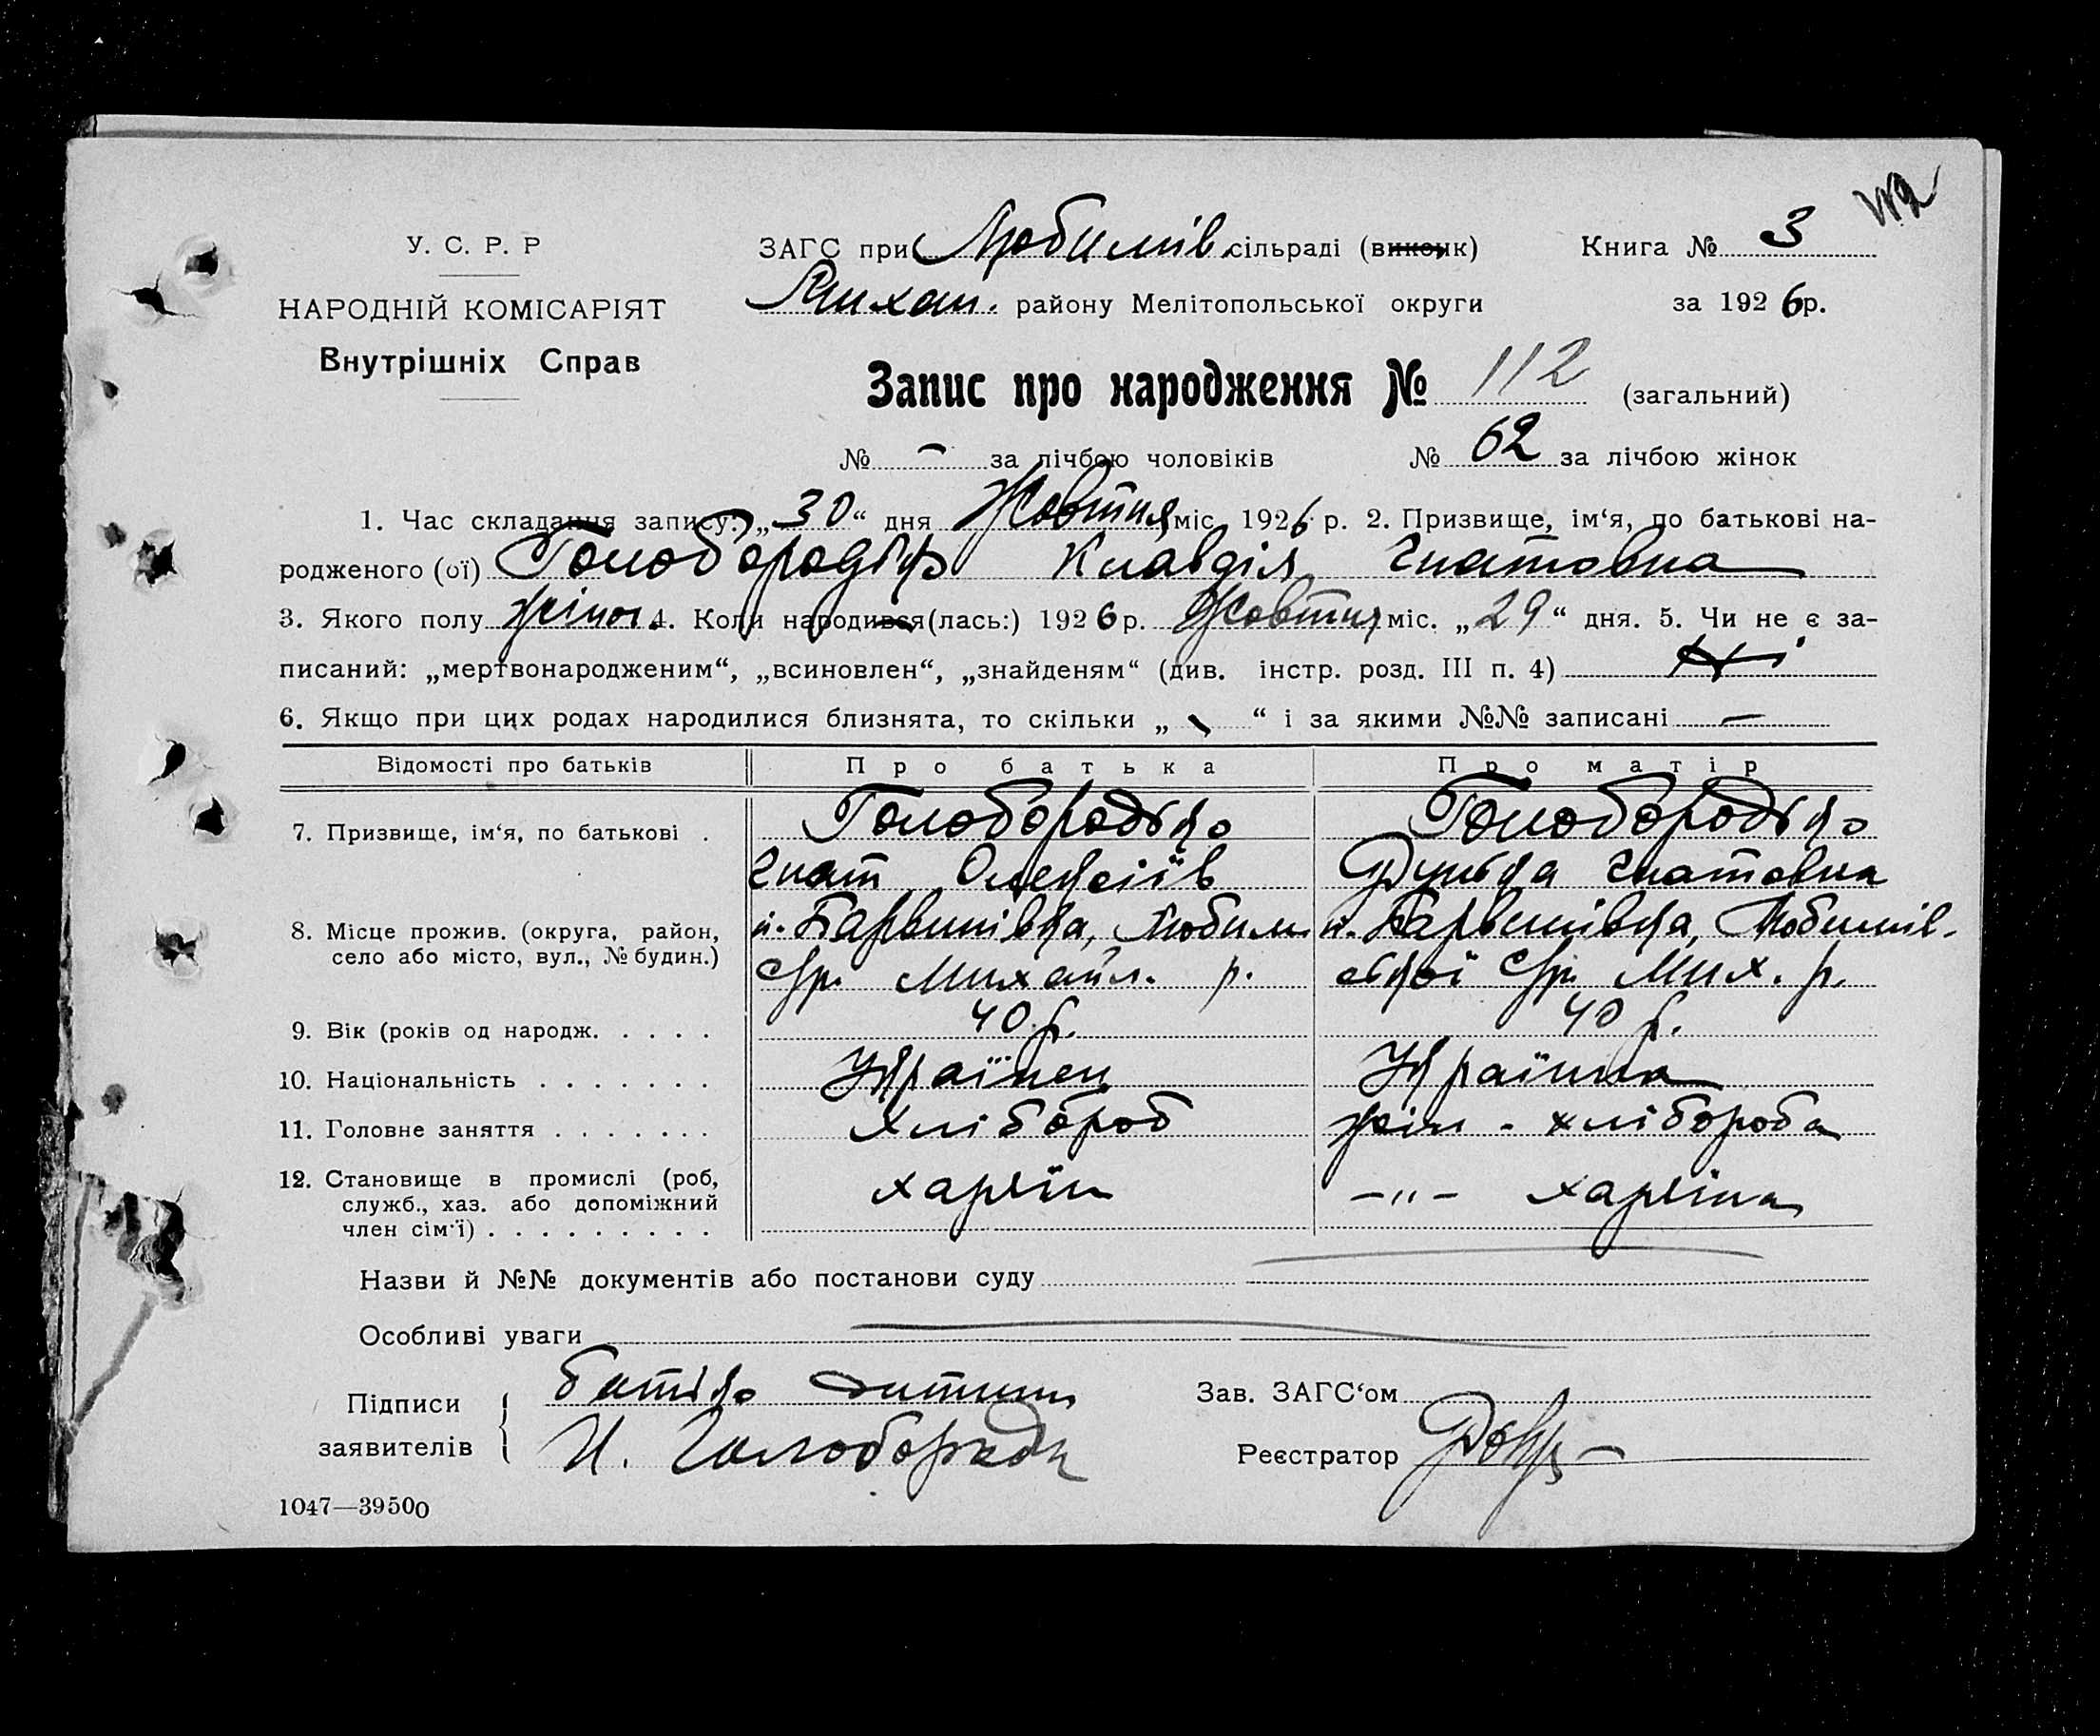 112
У. С. Р. Р
НАРОДНІЙ КОМІСАРІЯТ
Внутрішніх Справ
ЗАГС при Любимів. сільраді (виконк)
Михай. району Мелітопольської округи
Книга № 3
за 1926 р.
Запис про народження № 112 (загальний)
№ - за лічбою чоловіків № 62 за лічбою жінок
1. Час складання запису: „30“ дня Жовтня міс. 1926 р. 2. Призвище, ім‘я, по батькові на-
родженого (ої) Голобородько Клавдія Гнатовна
3. Якого полу жіноч. 4. Коли народився(лась:) 1926 р. Жовтня міс. „29“ дня. 5. Чи не є за-
писаний: „мертвонародженим“, „всиновлен“, „знайденям“ (див. інстр. розд. III п. 4) Ні
6. Якщо при цих родах народилися близнята, то скільки „ - “ і за якими №№ записані -
Відомості про батьків Про батька Про матір
7. Призвище, ім‘я, по батькові . Голобородько Голобородько
Гнат Олексіїв Гнатовна
8. Місце прожив. (округа, район, село або місто, вул., № будин.) Любим Любимів-
ср. Михайл. р. ської ср. Мих. р.
9. Вік (років од народж. . . . . 40 р. 40 р.
10. Національність . . . . . . . Українец Українка
11. Головне заняття . . . . . . . хлібороб жін - хлібороба
12. Становище в промислі (роб, служб., хаз. або допоміжний член сім‘ї) . . . . . . . . . хазяїн -„- хазяїна
Назви й №№ документів або постанови суду
Особливі уваги
Підписи заявителів
батько дитини
Зав. ЗАГС‘ом
Реєстратор
1047—39500